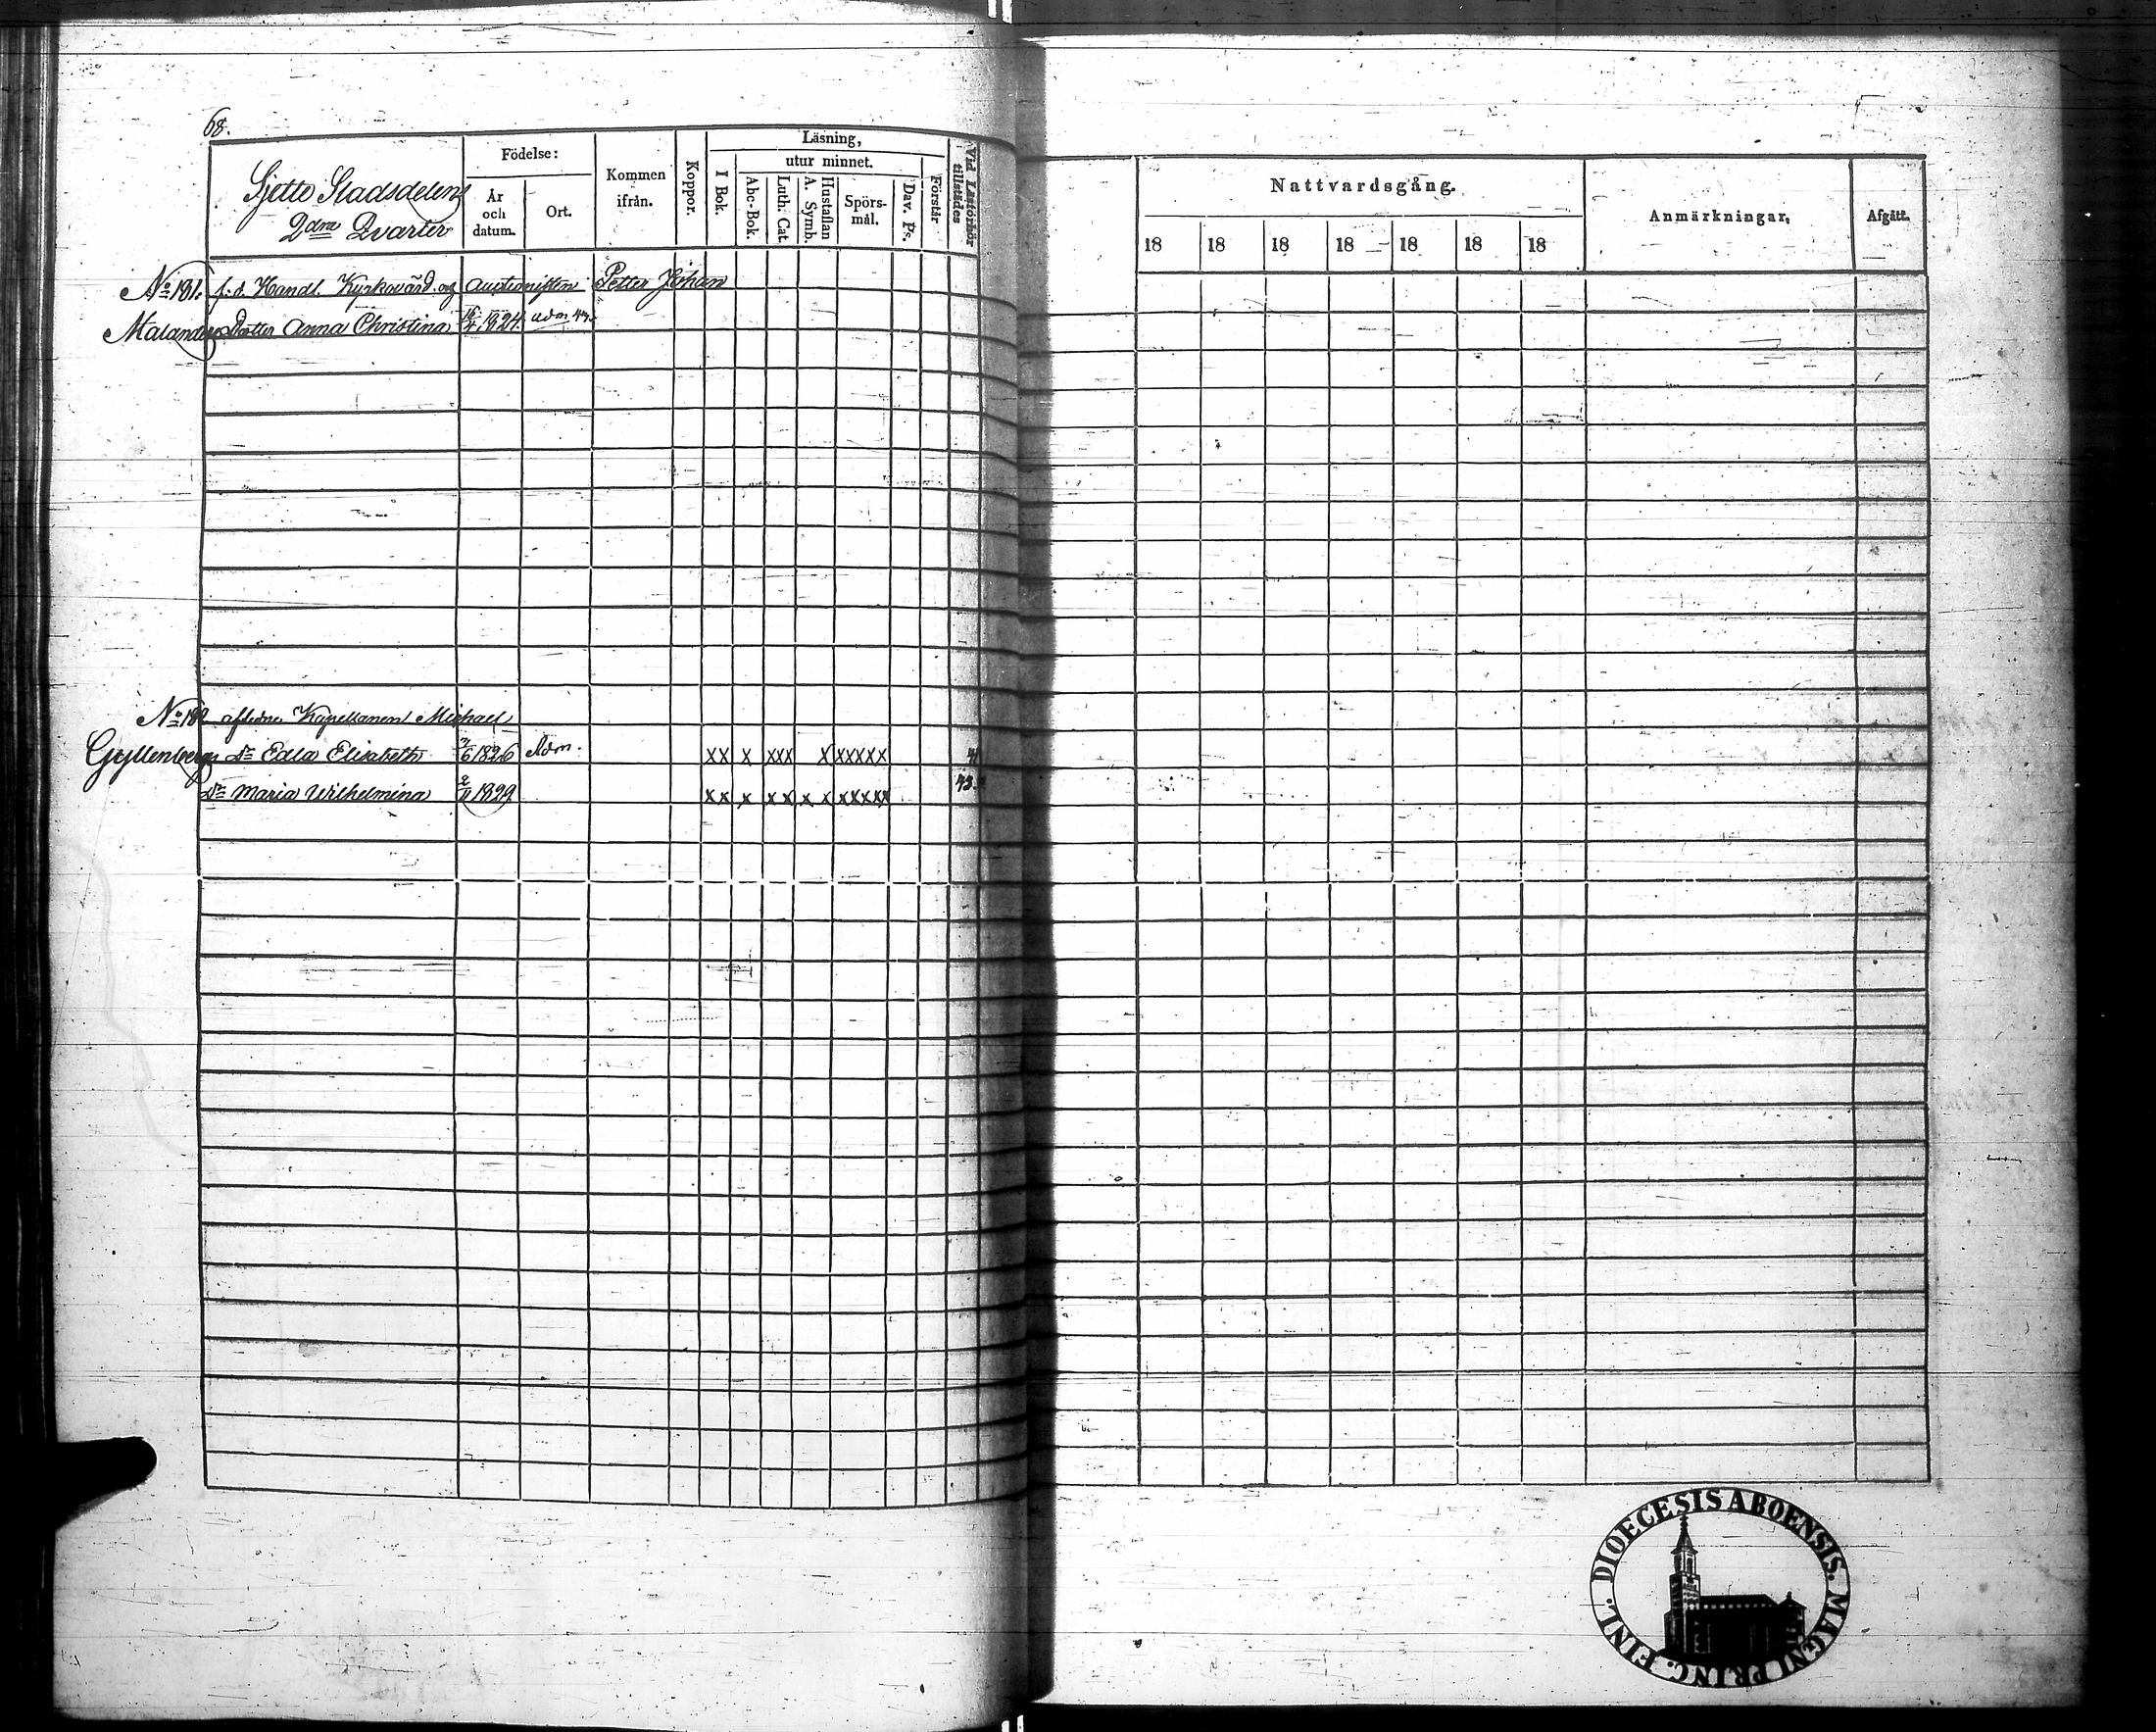 68.
Sjette Stadsdelens
2dra Qvarter
Födelse:
År
och
datum.
Ort.
Kommen
ifrån.
Koppor.
Läsning,
I Bok.
utur minnet.
Abc-Bok.
Luth. Cat.
A. Symb.
Hustaflan
Spörs-
mål.
Dav. Ps.
Förstår
Vid Läsförhör
tillstädes
Nattvardsgång.
18 18 18 18 18 18 18
Anmärkningar.
Afgått.
No 181. f:d. Handl. Kyrkovärd. og auctionisten Petter Johan
Malanders Dotter Anna Christina 1824.
No 182 aflidne Kapellanen Michael
Gyllenbergs dr Edla Elisabeth 1826 Adm. xx x xxx x xxxxx 41
dr Maria Wilhelmina 1829 xx x xx x x xxxxx 43.
DIOECESIS ABOENSIS. MAGNI PRINC. FINL.